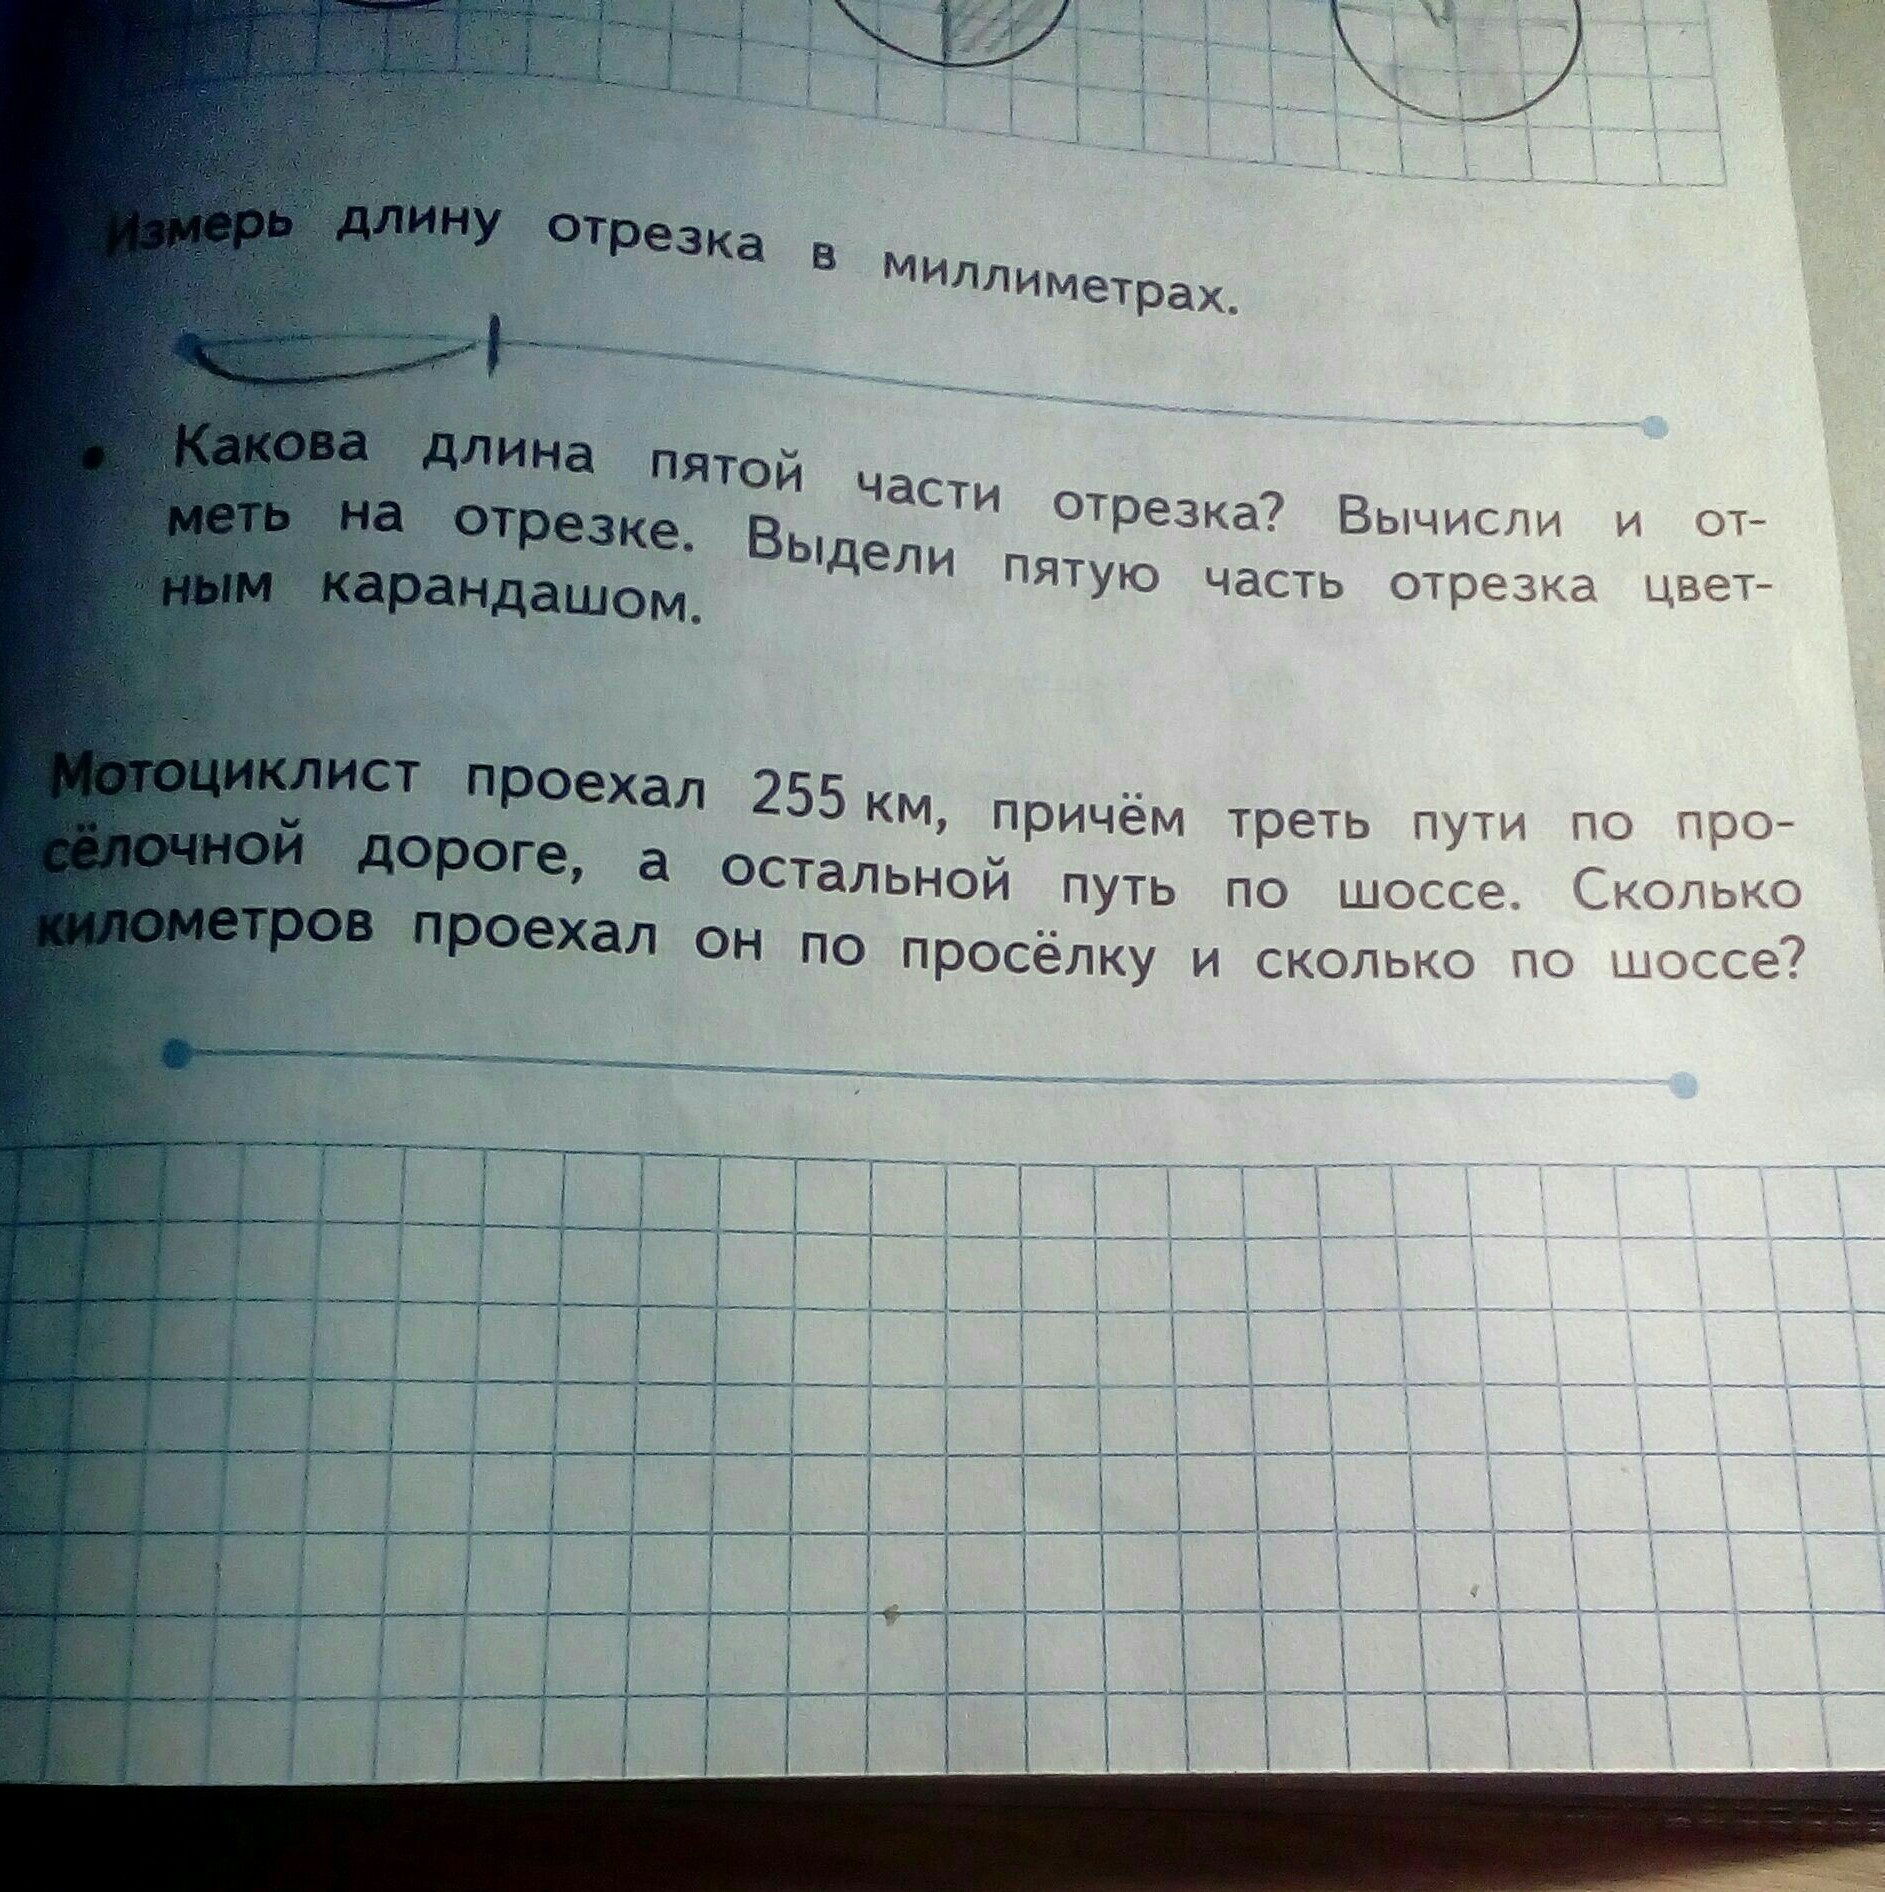 Измерь длину отрезка в миллиметрах.
• Какова длина пятой части отрезка? Вычисли и от-
меть на отрезке. Выдели пятую часть отрезка цвет-
ным карандашом.
Мотоциклист проехал 255 км, причём треть пути по про-
сёлочной дороге, а остальной путь по шоссе. Сколько
километров проехал он по просёлку и сколько по шоссе?